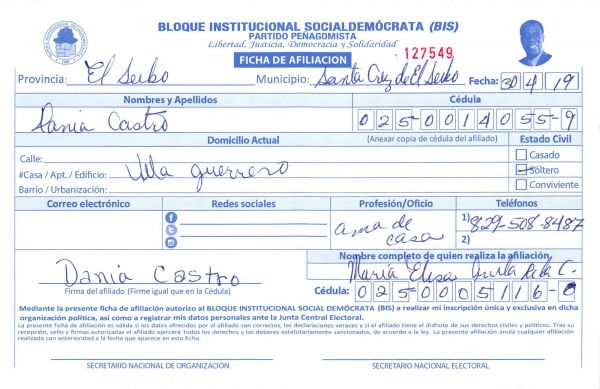 BLOQUE INSTITUCIONAL SOCIALDEMÓCRATA (BIS)
PARTIDO PEÑAGOMISTA
Libertad, Justicia, Democracia y Solidaridad
127549
FICHA DE AFILIACION
Provincia: El Seibo Municipio: Santa Cruz de El Seibo Fecha: 30/4/19
Nombres y Apellidos Cédula
Dania Castro 025-0014055-9
Domicilio Actual (Anexar copia de cédula del afiliado) Estado Civil
Calle: Casado
#Casa / Apt. / Edificio: Villa guerrero Soltero
Barrio / Urbanización: Conviviente
Correo electrónico Redes sociales Profesión/Oficio Teléfonos
ama de casa 1) 829-508-8487
2)
Nombre completo de quien realiza la afiliación
Dania Castro María Elisa C.
Firma del afiliado (Firme igual que en la Cédula) Cédula: 025-0005116-0
Mediante la presente ficha de afiliación autorizo al BLOQUE INSTITUCIONAL SOCIAL DEMÓCRATA (BIS) a realizar mi inscripción única y exclusiva en dicha
organización política, así como a registrar mis datos personales ante la Junta Central Electoral.
La presente ficha de afiliación es válida si los datos ofrecidos por el afiliado son correctos, las declaraciones veraces y si el afiliado tiene el disfrute de sus derechos civiles y políticos. Tras su
recepción, sello y firmas autorizadas el afiliado ejercerá todos los derechos y los deberes estatutariamente sancionados, de acuerdo a la ley. La presente afiliación anula cualquier afiliación
realizada con anterioridad a la fecha que aparece en esta ficha.
SECRETARIO NACIONAL DE ORGANIZACIÓN SECRETARIO NACIONAL ELECTORAL